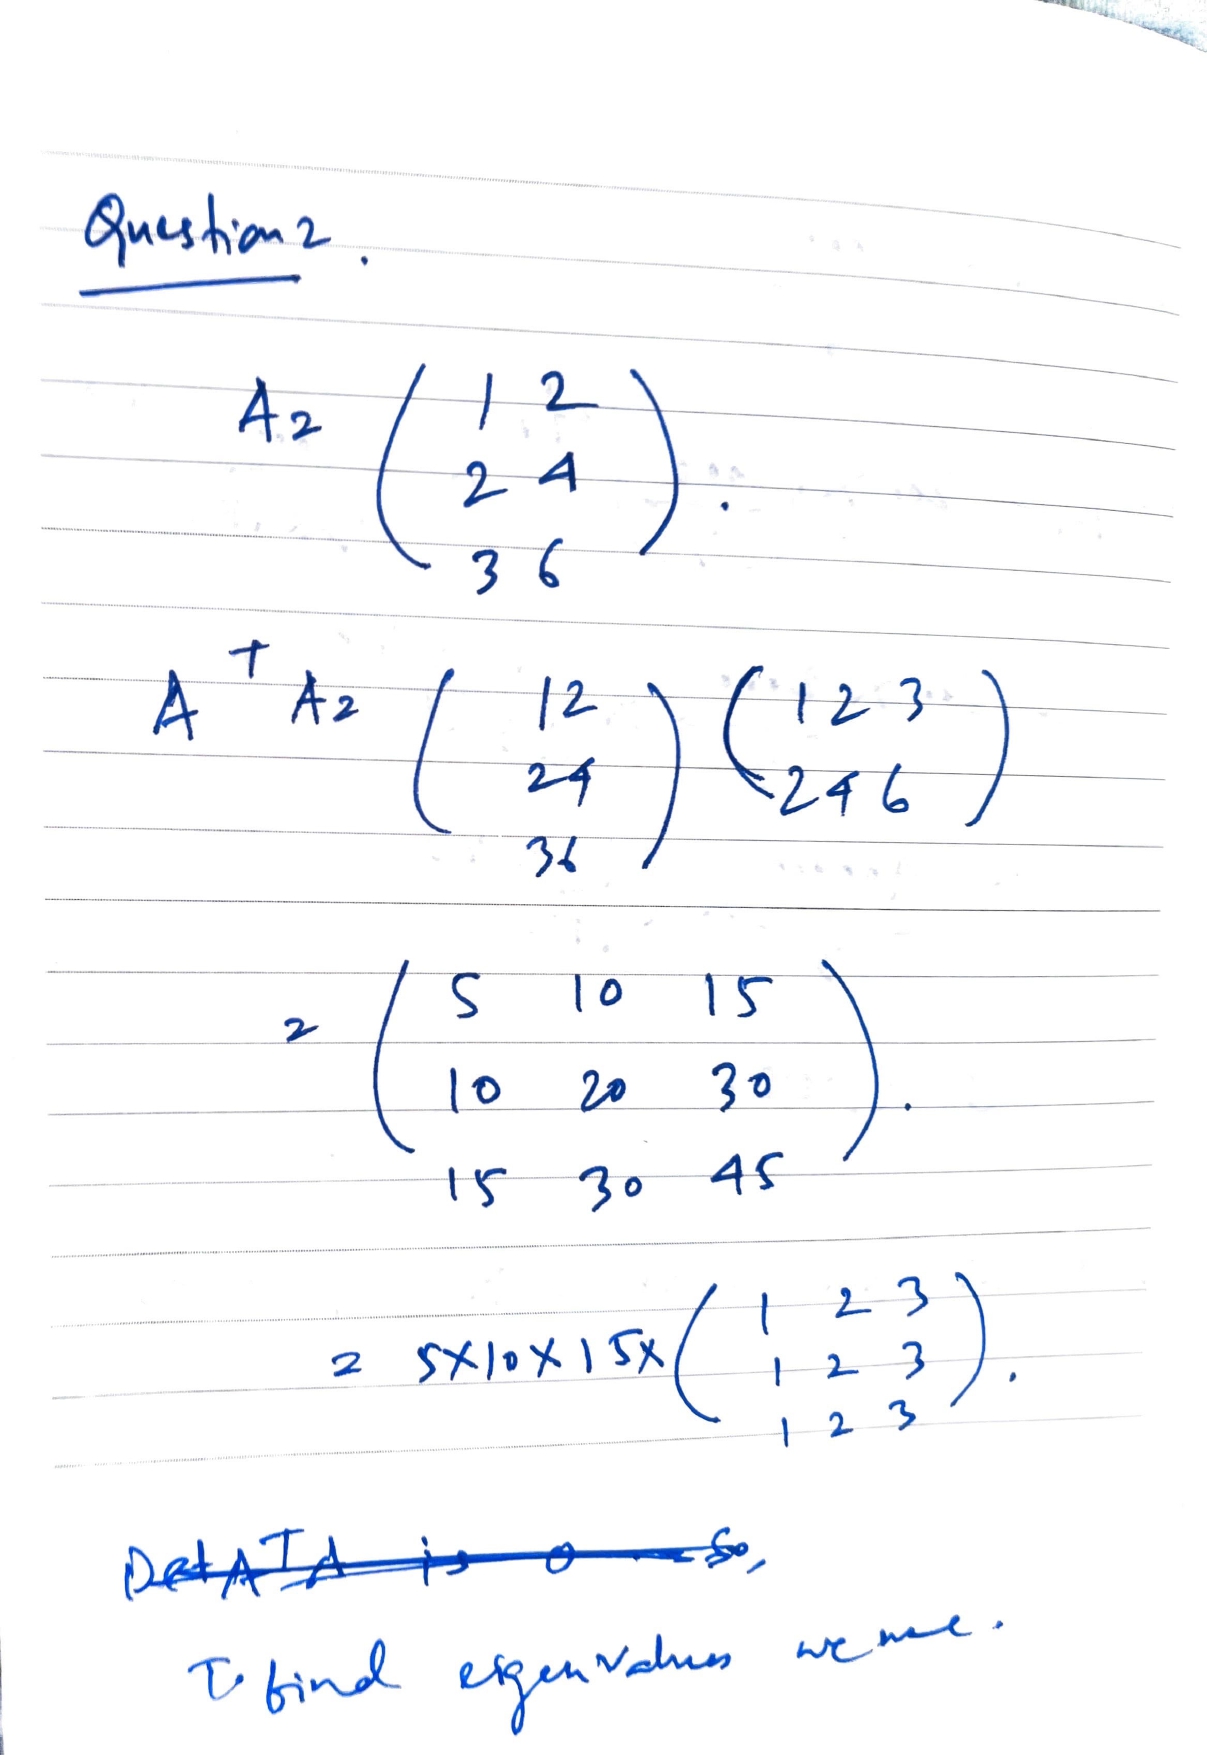 Question 2.
A = ( 1 2
2 4
3 6 ).
A^T A = ( 12
24
36 ) ( 1 2 3
2 4 6 )
= ( 5 10 15
10 20 30
15 30 45 ).
= 5×10×15× ( 1 2 3
1 2 3
1 2 3 ).
Det A^T A is 0 So,
To find eigenvalues we use.